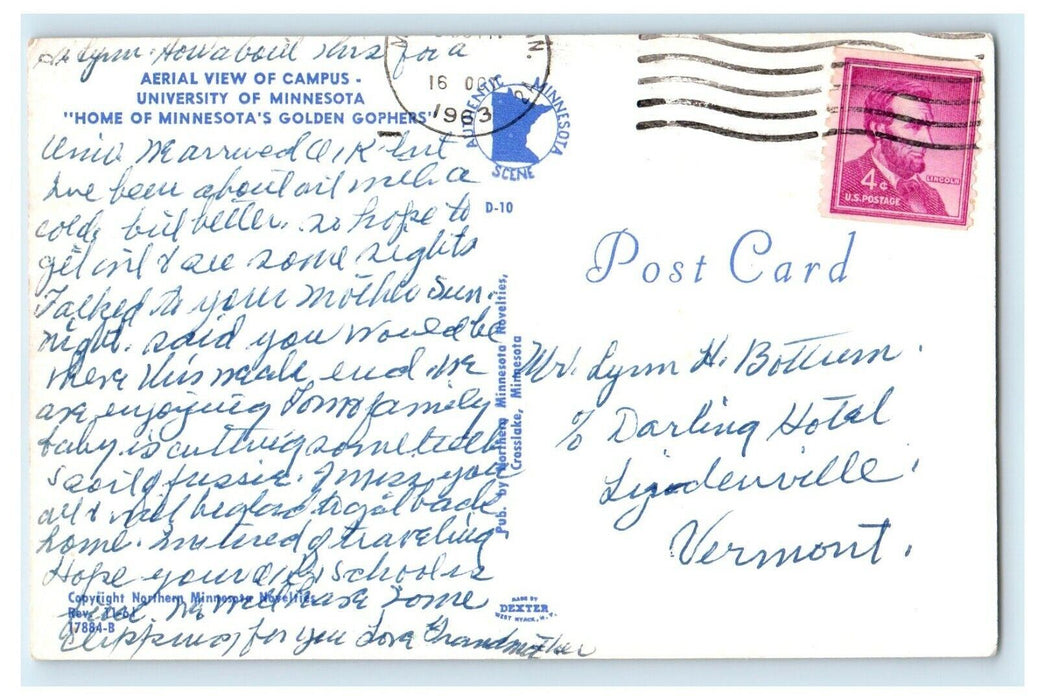 Hi Lynn. How about this for a
AERIAL VIEW OF CAMPUS -
UNIVERSITY OF MINNESOTA
"HOME OF MINNESOTA'S GOLDEN GOPHERS"
Univ. We arrived O.K. but
I've been about sit with a
cold, but better. so hope to
get out & see some sights
Talked to your mother Sun.
night. said you would be
there this week end. We
are enjoying Toms family
baby is cutting some teeth
so a fussie. I miss you
all & will be glad to get back
home. I'm tired of traveling
Hope your school is
We will have some
clippings for you Love Grandmother
Copyright Northern Minnesota Novelties
Rev. 11-61
17884-B
16 OC
1963
AUTHENTIC MINNESOTA
SCENE
D-10
Pub. by Northern Minnesota Novelties,
Crosslake, Minnesota
MADE BY
DEXTER
WEST NYACK, N. Y.
4¢
LINCOLN
U.S. POSTAGE
Post Card
Mr. Lynn H. Bottum.
c/o Darling Hotel
Lyndenville,
Vermont.